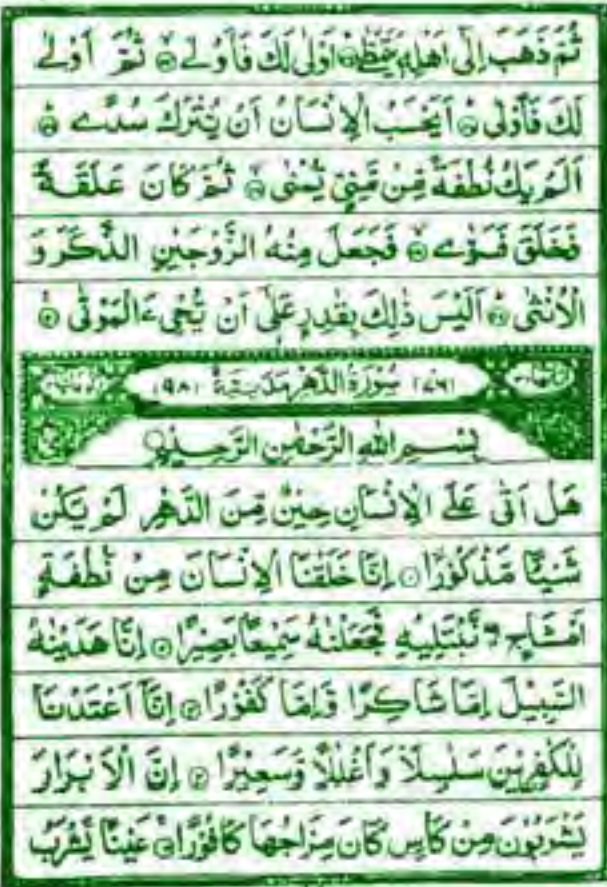 ثُمَّ ذَهَبَ اِلٰۤى اَهْلِهٖ يَتَمَطّٰى ۝٣٣ اَوْلٰى لَكَ فَاَوْلٰى ۝٣٤ ثُمَّ اَوْلٰى
لَكَ فَاَوْلٰى ۝٣٥ اَيَحْسَبُ الْاِنْسَانُ اَنْ يُّتْرَكَ سُدًى ۝٣٦
اَلَمْ يَكُ نُطْفَةً مِّنْ مَّنِيٍّ يُّمْنٰى ۝٣٧ ثُمَّ كَانَ عَلَقَةً
فَخَلَقَ فَسَوّٰى ۝٣٨ فَجَعَلَ مِنْهُ الزَّوْجَيْنِ الذَّكَرَ وَ
الْاُنْثٰى ۝٣٩ اَلَيْسَ ذٰلِكَ بِقٰدِرٍ عَلٰۤى اَنْ يُّحْيِۦَ الْمَوْتٰى ۝٤٠
(٧٦) سُوْرَةُ الدَّهْرِ مَدَنِيَّةٌ (٩٨)
بِسْمِ اللهِ الرَّحْمٰنِ الرَّحِيْمِ
هَلْ اَتٰى عَلَى الْاِنْسَانِ حِيْنٌ مِّنَ الدَّهْرِ لَمْ يَكُنْ
شَيْئًا مَّذْكُوْرًا ۝١ اِنَّا خَلَقْنَا الْاِنْسَانَ مِنْ نُّطْفَةٍ
اَمْشَاجٍ ۖ نَّبْتَلِيْهِ فَجَعَلْنٰهُ سَمِيْعًۢا بَصِيْرًا ۝٢ اِنَّا هَدَيْنٰهُ
السَّبِيْلَ اِمَّا شَاكِرًا وَّاِمَّا كَفُوْرًا ۝٣ اِنَّاۤ اَعْتَدْنَا
لِلْكٰفِرِيْنَ سَلٰسِلَا۟ وَاَغْلٰلًا وَّسَعِيْرًا ۝٤ اِنَّ الْاَبْرَارَ
يَشْرَبُوْنَ مِنْ كَاْسٍ كَانَ مِزَاجُهَا كَافُوْرًا ۝٥ عَيْنًا يَّشْرَبُ